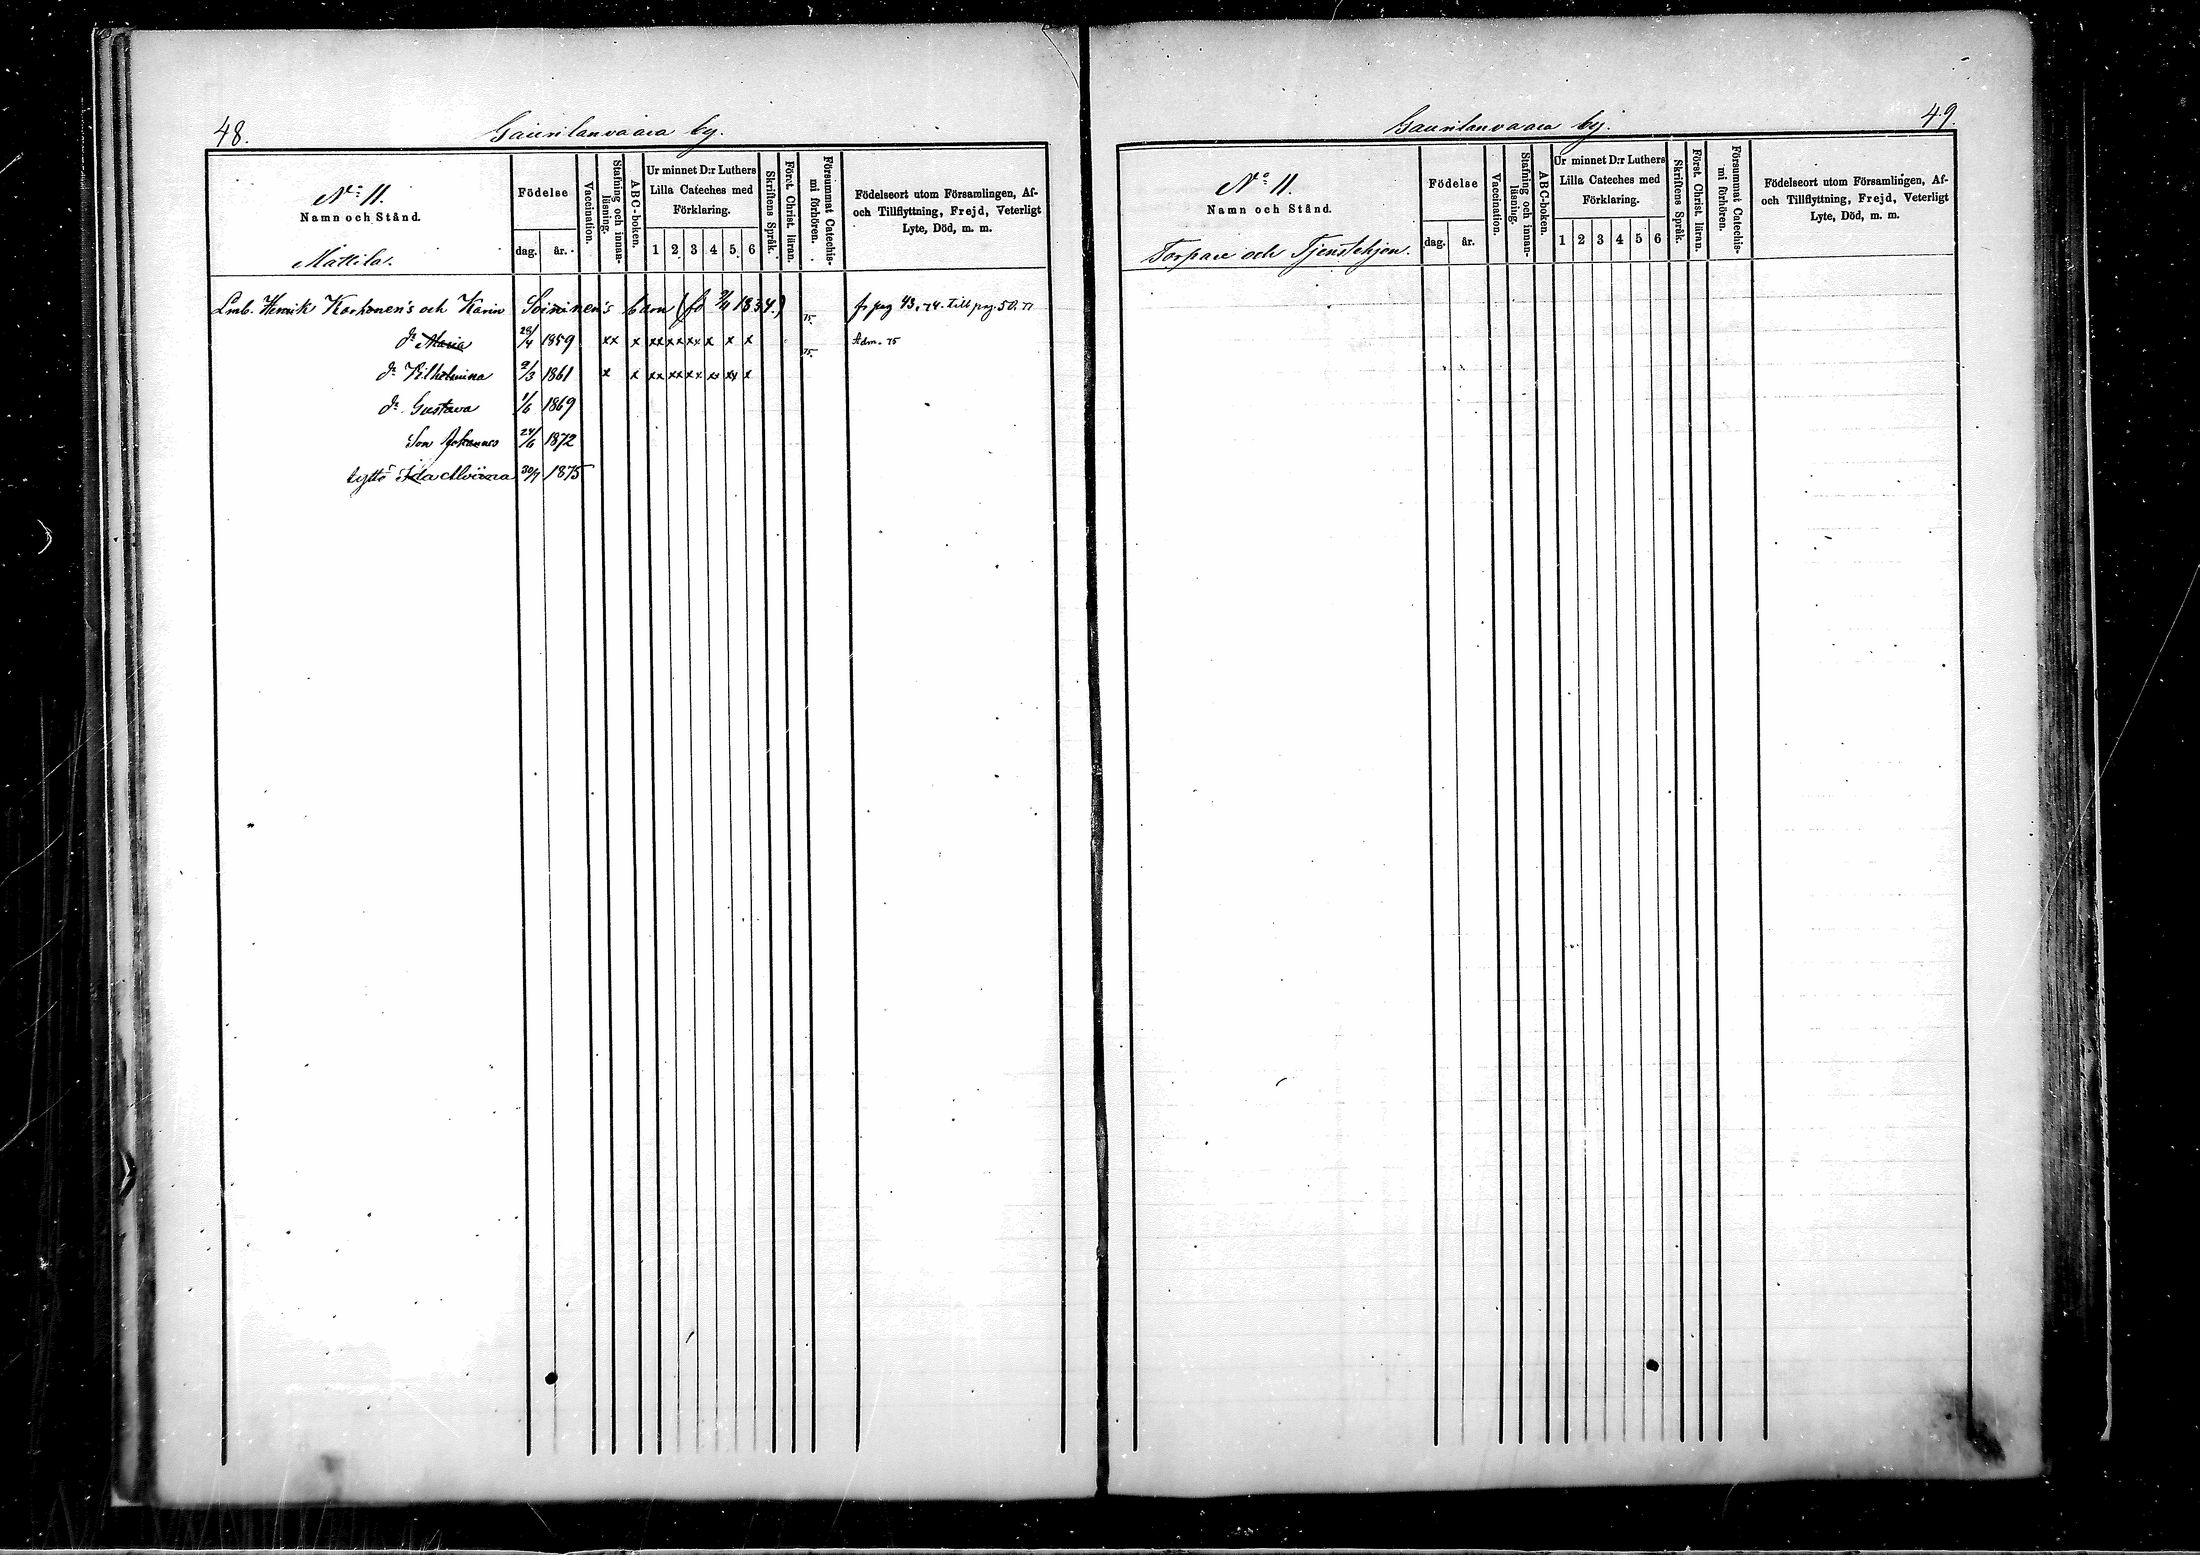 48.
Gaurilanvaara by.
Nº 11.
Namn och Stånd.
Mattila.
Födelse
dag. år.
Vaccination.
Stafning och innan-
läsning.
ABC-boken.
Ur minnet D:r Luthers
Lilla Cateches med
Förklaring.
1 2 3 4 5 6
Skriftens Språk.
Först. Christ. läran.
Försummat Catechis-
mi förhören.
Födelseort utom Församlingen, Af-
och Tillflyttning, Frejd, Veterligt
Lyte, Död, m. m.
Lmb. Henrik Korhonen's och Karin Soininen's barn (fö 1834.) 75. fr pag 43. 74. till pag. 50. 77
dr Maria 28/4 1859 xx x xx xx xx x x x 75. Adm. 75
dr Vilhelmina 2/3 1861 x x xx xx xx xx xx x
dr Gustava 1/6 1869
Son Johannes 24/6 1872
tyttö Ida Alviina 30/7 1875
49.
Gaurilanvaara by.
Nº 11.
Namn och Stånd.
Torpare och Tjenstehjon.
Födelse
dag. år.
Vaccination.
Stafning och innan-
läsning.
ABC-boken.
Ur minnet D:r Luthers
Lilla Cateches med
Förklaring.
1 2 3 4 5 6
Skriftens Språk.
Först. Christ. läran.
Försummat Catechis-
mi förhören.
Födelseort utom Församlingen, Af-
och Tillflyttning, Frejd, Veterligt
Lyte, Död, m. m.